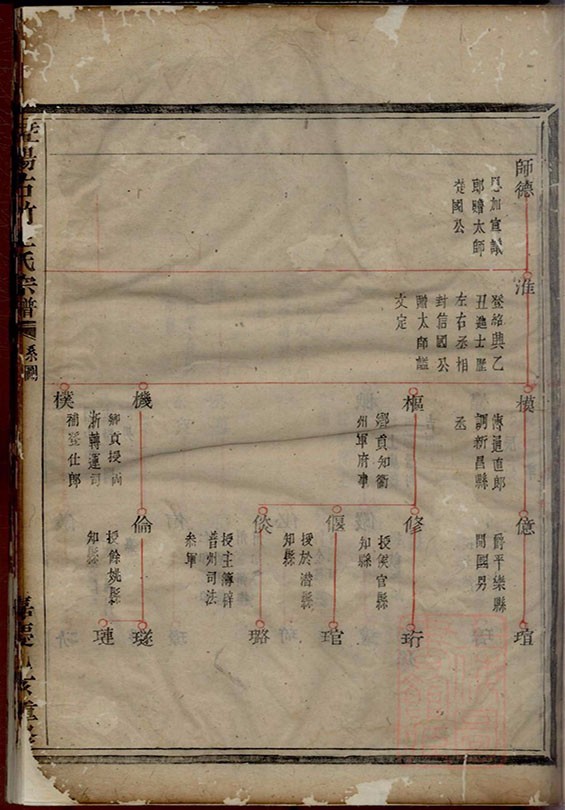 師德
恩加宣議
郎贈太師
從國公
淮
登紹興乙
丑進士歷
左右丞相
封信國公
贈太師諡
文定
模
調新昌縣
丞
樞
鄉貢知衢
州軍府事
機
鄉貢授兩
浙轉運司
樸
補登仕郎
億
爵平樂縣
開國男
修
授侯官縣
知縣
偃
授於潛縣
知縣
倓
授主簿辟
普州司法
叅軍
倫
授餘姚縣
知縣
瑄
珩
琯
璐
璲
璉
暨陽古竹王氏宗譜
系圖
嘉慶